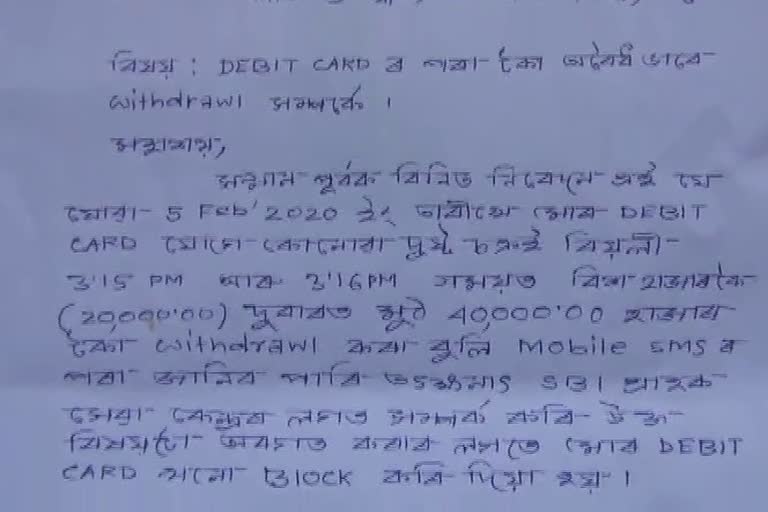 বিষয় : DEBIT CARD ৰ পৰা টকা অবৈধ ভাবে
withdrawl সম্পৰ্কে ।
মহাশয়,
সন্মান পূৰ্বক বিনিত নিবেদন এই যে
যোৱা 5 Feb' 2020 ইং তাৰীখে মোৰ DEBIT
CARD যোগে কোনোবা দুষ্ট চক্ৰই বিয়লী
3'15 PM আৰু 3'16PM সময়ত বিশ হাজাৰকৈ
(20,000'00) দুবাৰত মুঠ 40,000'00 হাজাৰ
টকা withdrawl কৰা বুলি Mobile SMS ৰ
পৰা জানিব পাৰি তৎক্ষনাৎ SBI গ্ৰাহক
সেৱা কেন্দ্ৰৰ লগত সম্পৰ্ক কৰি উক্ত
বিষয়টো অৱগত কৰাৰ লগতে মোৰ DEBIT
CARD খনো Block কৰি দিয়া হয় ।